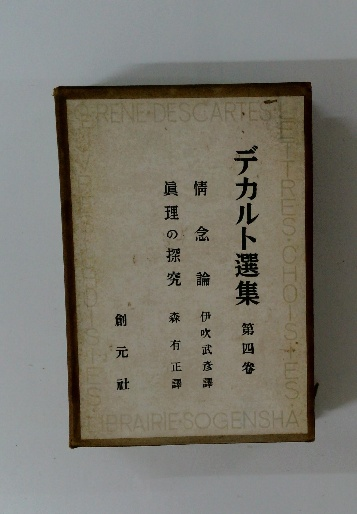 デカルト選集 第四卷
情念論 伊吹武彦譯
眞理の探究 森有正譯
創元社
RENE·DESCARTES
LETTRES·CHOISIES
LIBRAIRIE·SOGENSHA